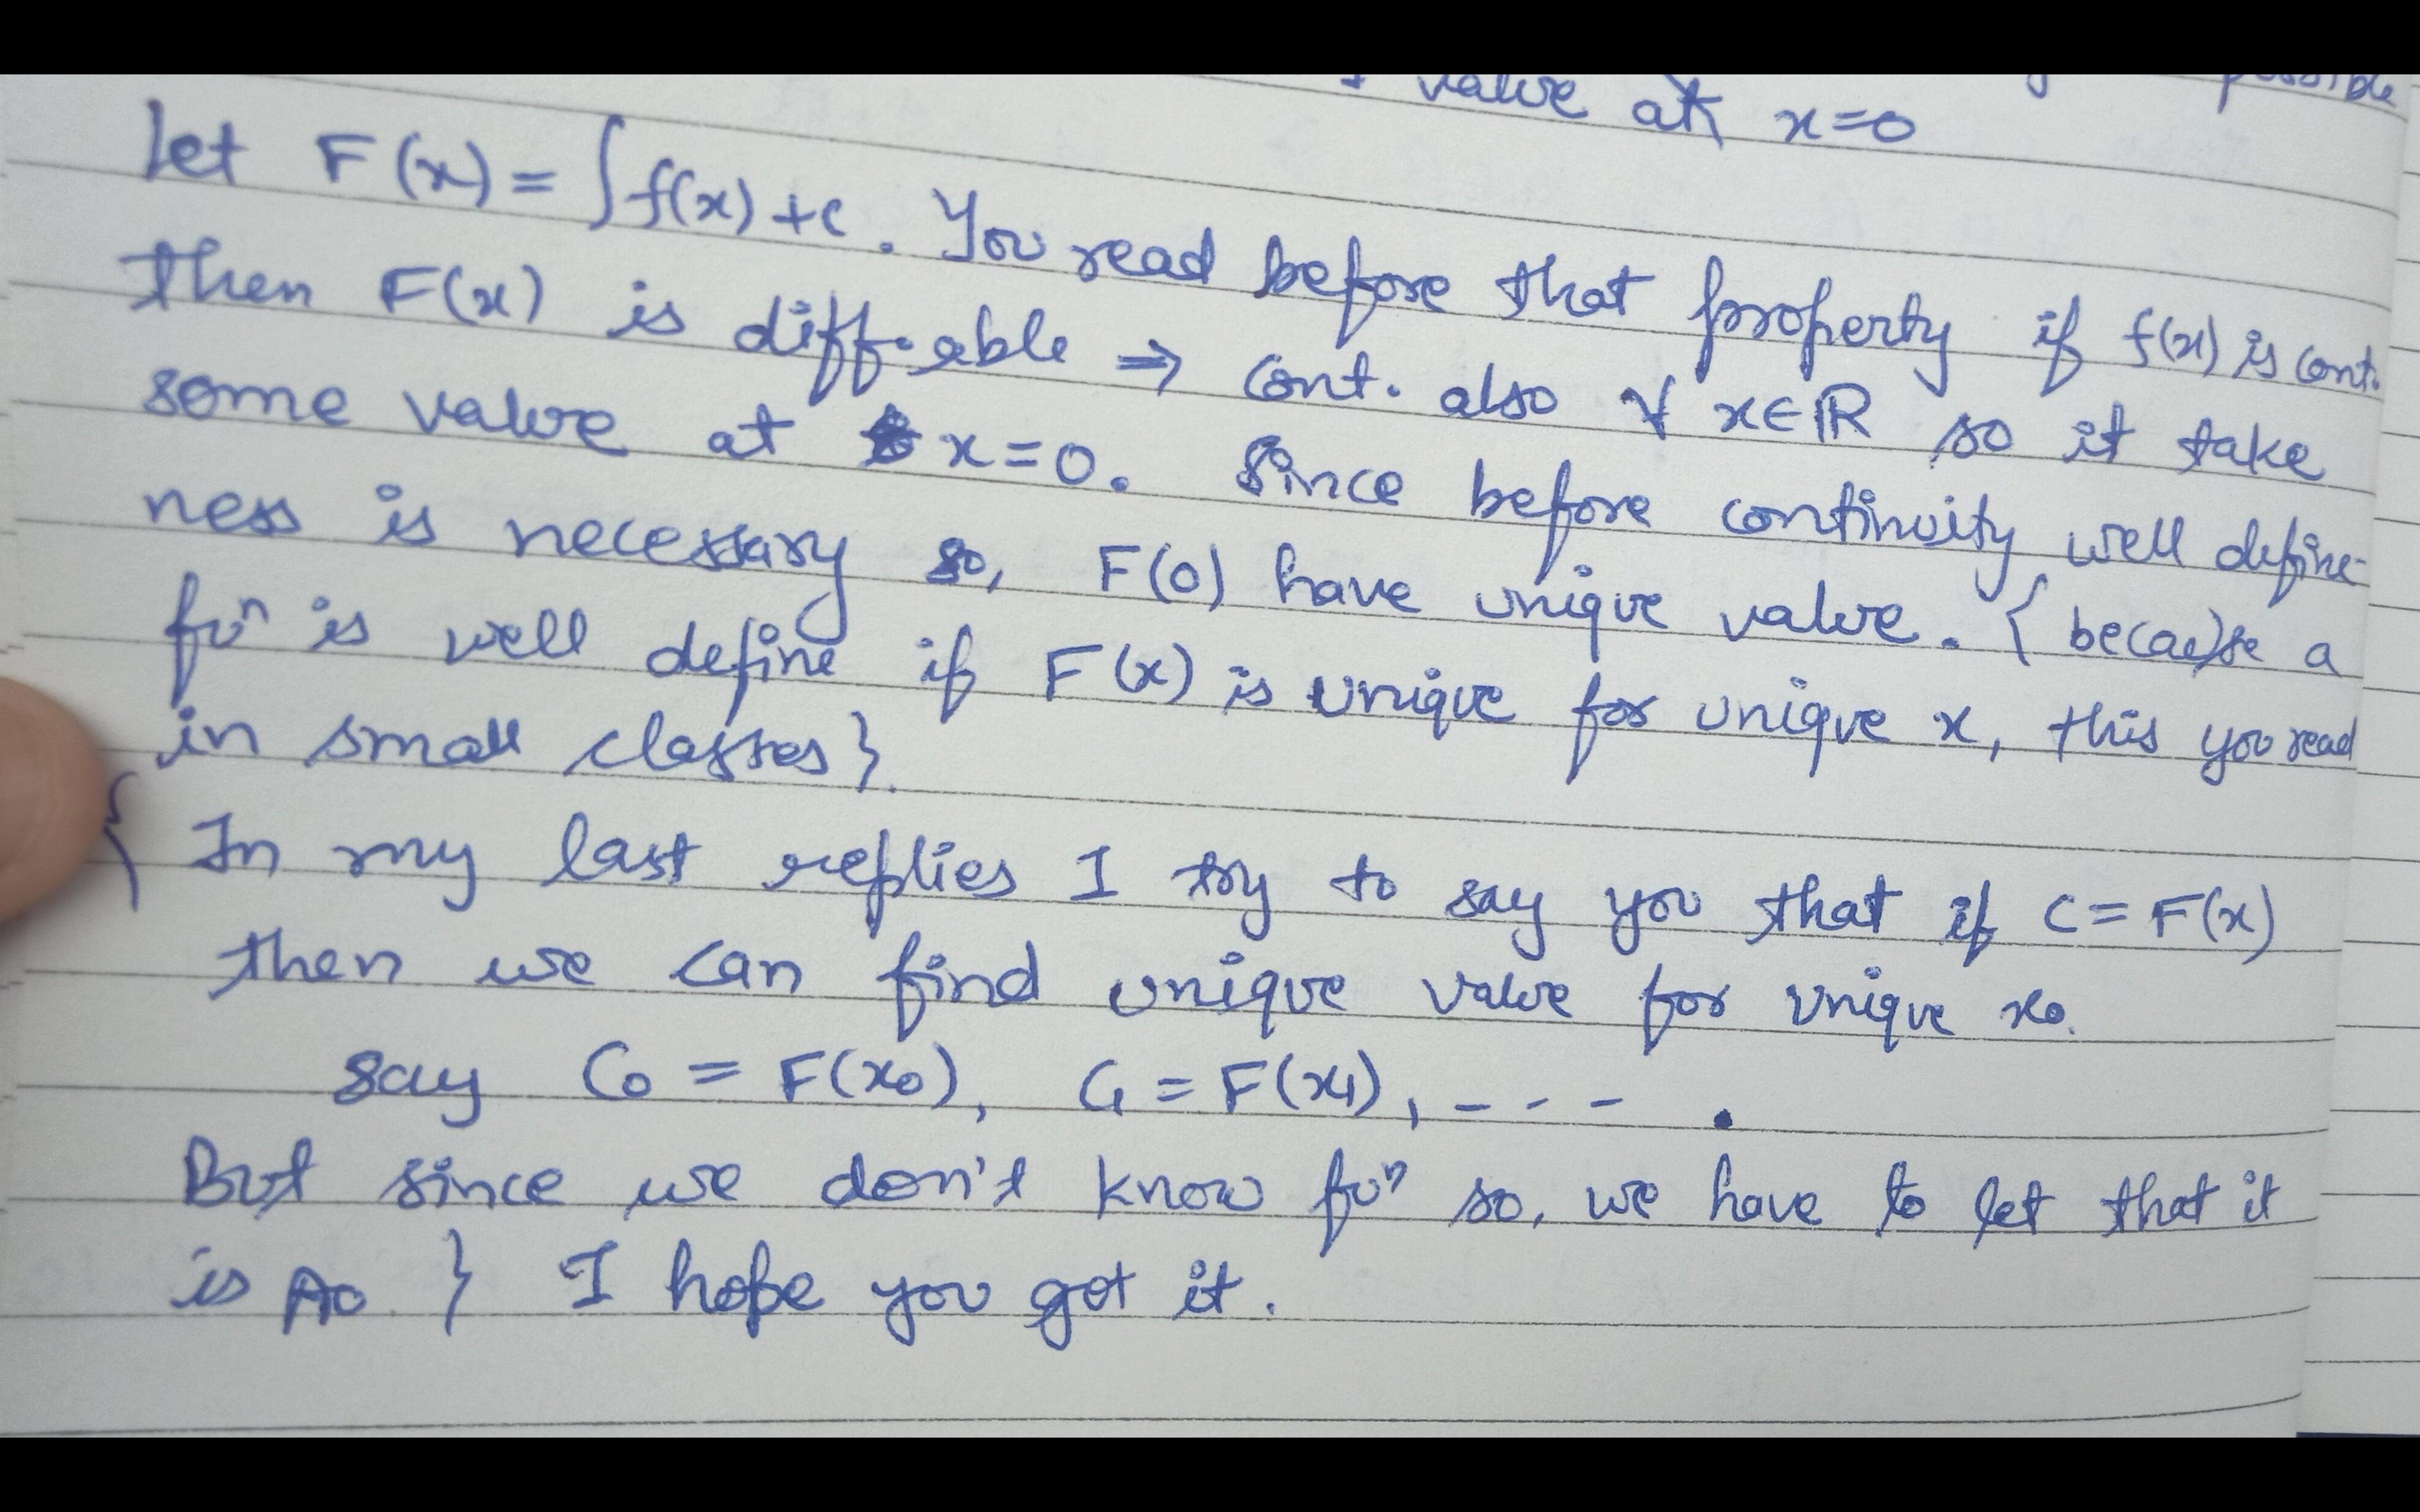 value at x=0 possible
let F(x) = ∫f(x)+c. You read before that property if f(x) is cont.
then F(x) is diff.able ⇒ cont. also ∀ x∈ℝ so it take
some value at x=0. Since before continuity well define-
ness is necessary so, F(0) have unique value. { because a
fuⁿ is well define if F(x) is unique for unique x, this you read
in small classes}.
{ In my last replies I try to say you that if C = F(x)
then we can find unique value for unique x₀.
say C₀ = F(x₀), C₁ = F(x₁), - - - .
But since we don't know fuⁿ so, we have to let that it
is A₀ } I hope you got it.